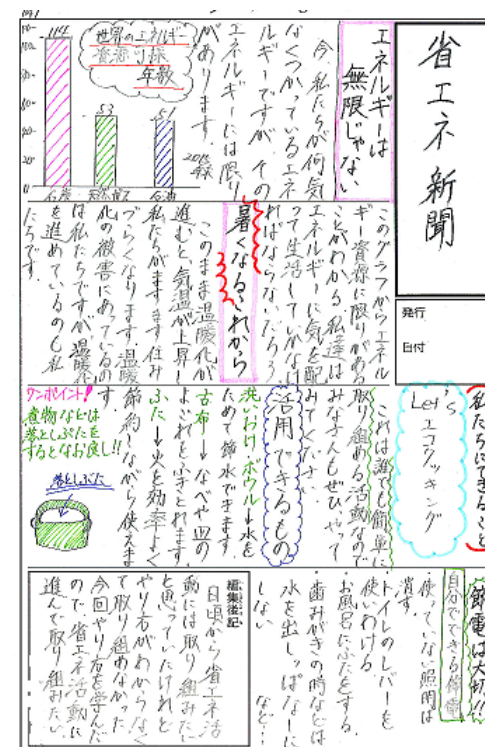 省エネ新聞
発行
日付
エネルギーは
無限じゃない
今、私たちが何気
なくつかっているエネ
ルギーですが、その
エネルギーには限り
があります。
世界のエネルギー
資源可採
年数
114
53
51
石炭
天然ガス
石油
このグラフからエネル
ギー資源に限りがある
ことがわかる。私達は
エネルギーに気を配
って生活していかなけ
ればならないだろう
暑くなるこれから
このまま温暖化が
進むと、気温が上昇し
私たちがますます住み
づらくなります。温暖
化の被害にあっているの
は私たちですが、温暖化
を進めているのも私
たちです。
私たちにできること
Let's
エコクッキング
これは誰でも簡単に
取り組める活動なので
みなさんもぜひやって
みてください。
活用できるもの
洗いおけ・ボウル→水を
ためて節水できます
古布→なべや皿の
よごれをふきとれます。
ふた→火を効率よく
節約しながら使えま
す。
ワンポイント!
煮物などは
落としぶたを
するとなお良し!!
落としぶた
節電は大切!!
自分でできる節電
・使っていない照明は
消す。
・トイレのレバーを
使いわける。
・お風呂にふたをする。
・歯みがきの時などは
水を出しっぱなーに
しない
など…
編集後記
日頃から省エネ活
動には取り組みたい
と思っていたけれど
やり方がわからなく
て取り組めなかった
今回やり方を学んだ
ので省エネ活動に
進んで取り組みたい。